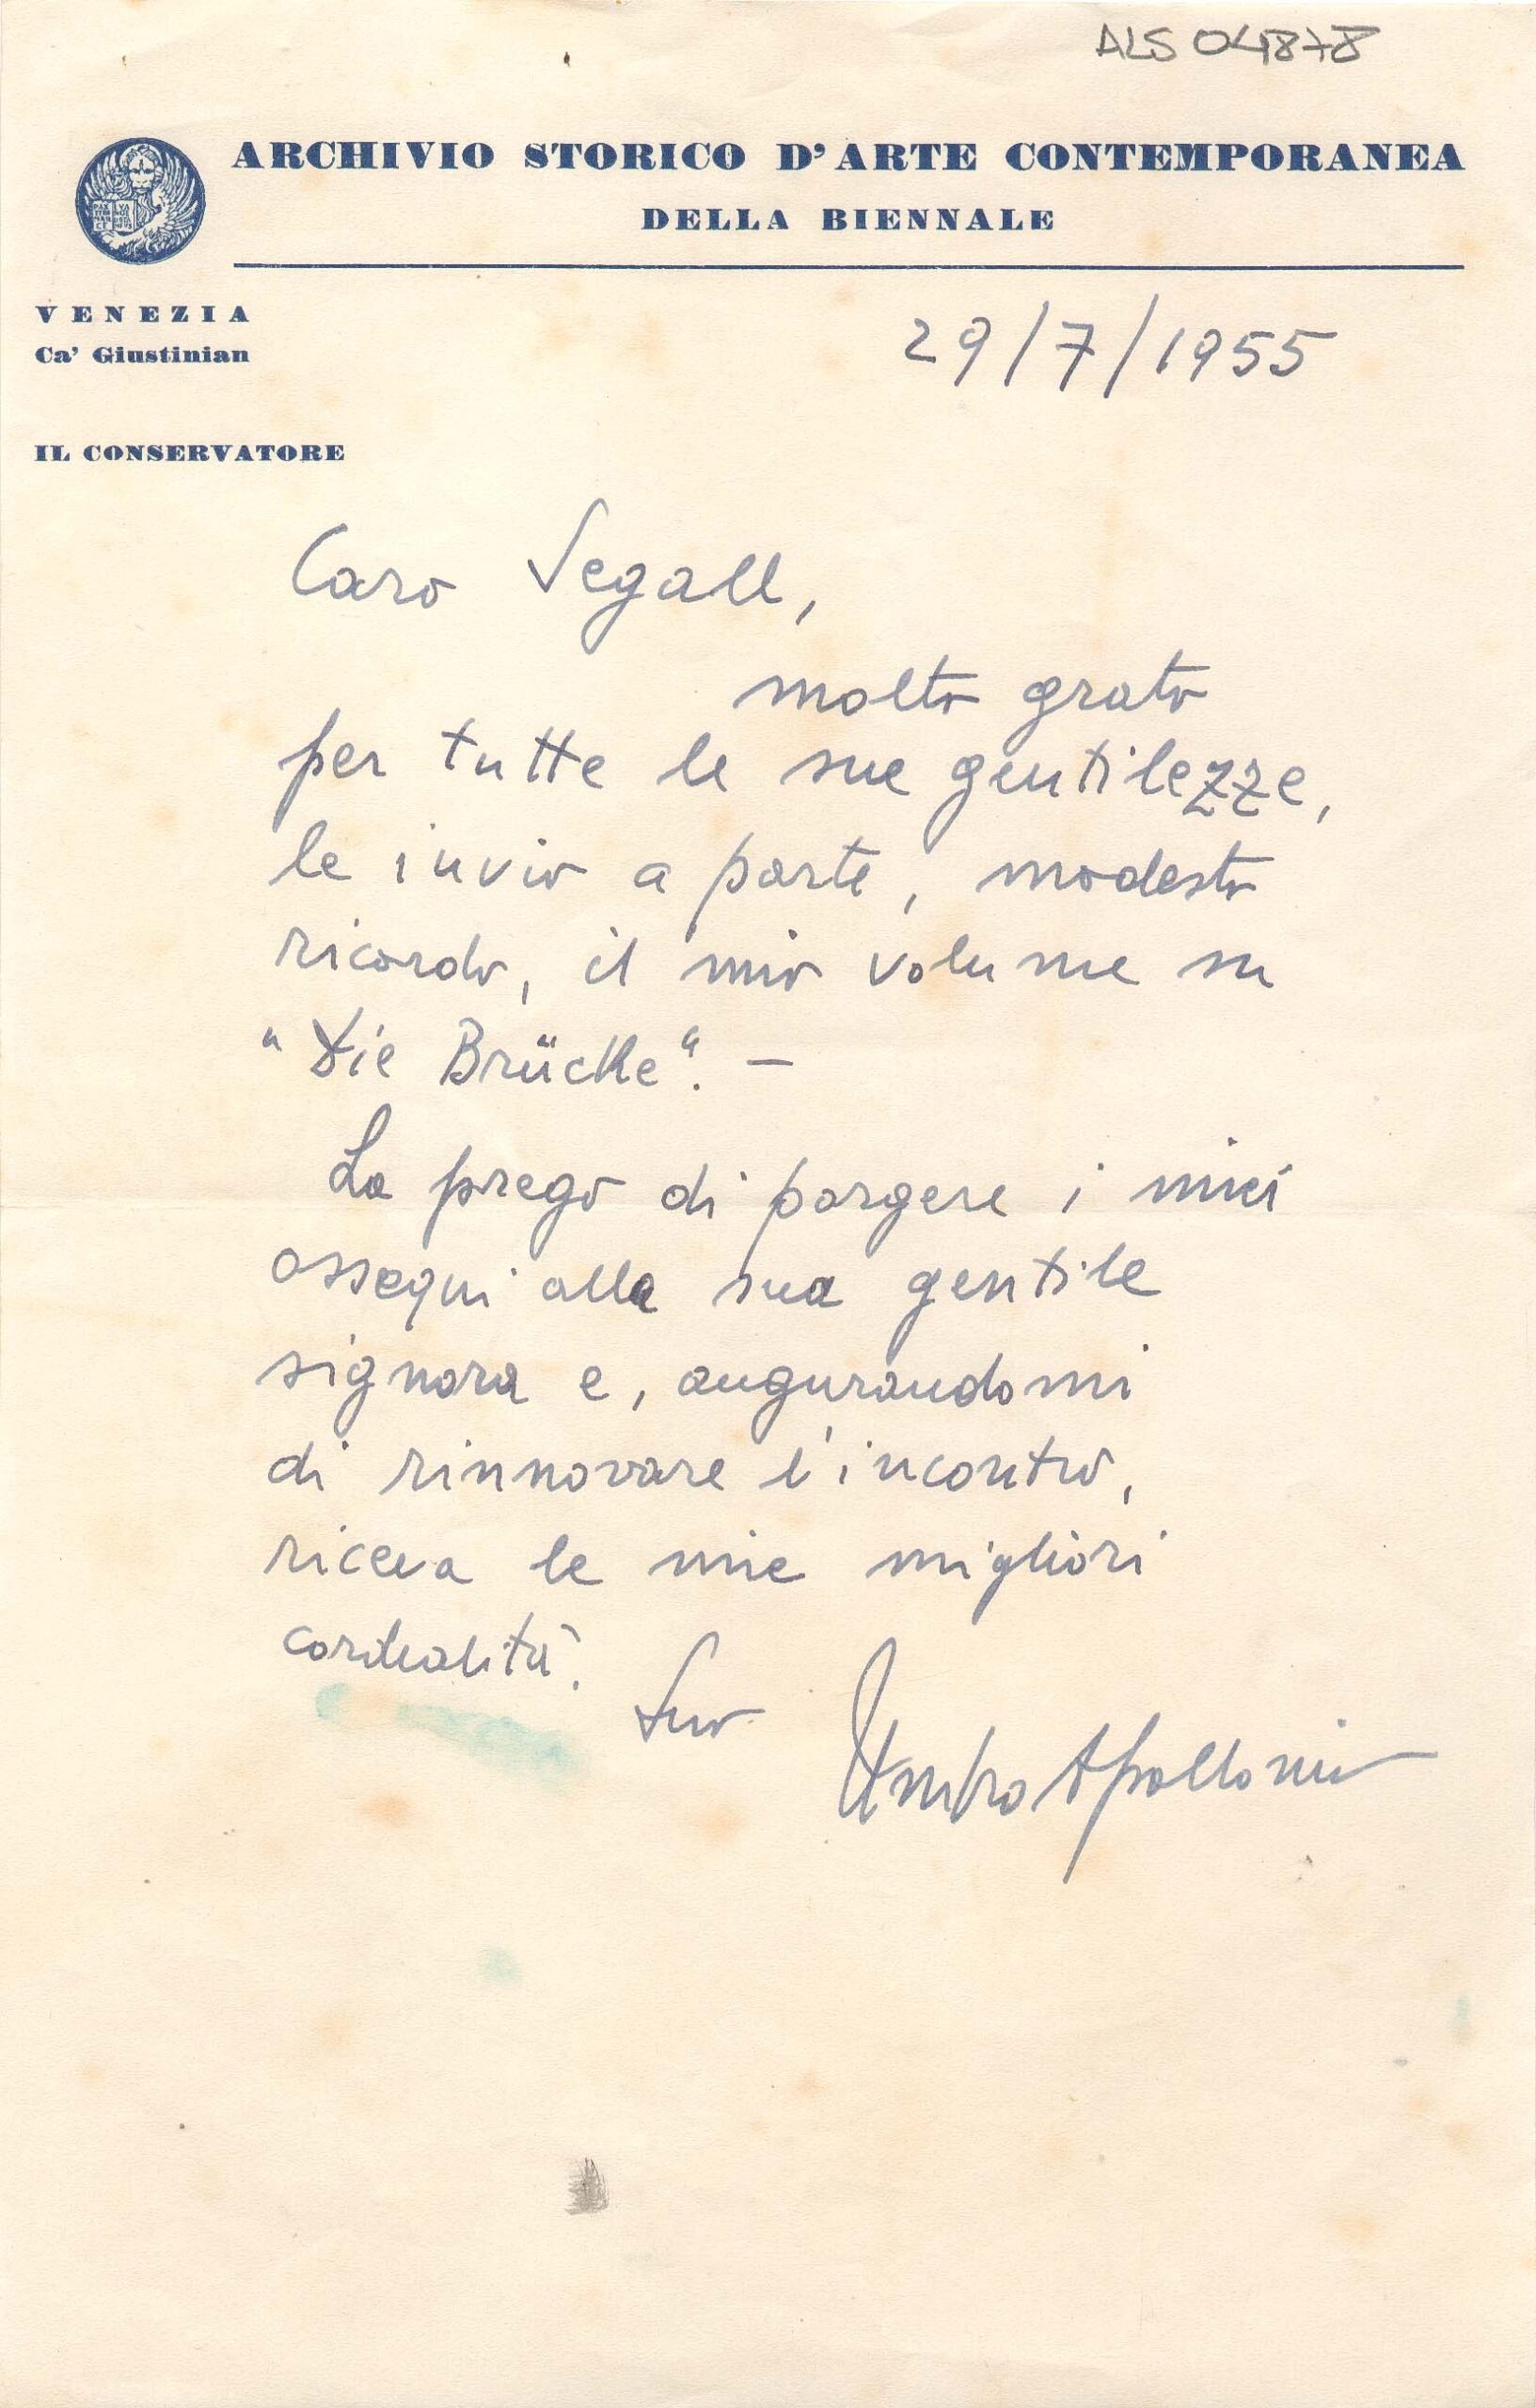 ALS 04878
ARCHIVIO STORICO D'ARTE CONTEMPORANEA
DELLA BIENNALE
VENEZIA
Ca' Giustinian
29/7/1955
IL CONSERVATORE
Caro Segall,
molto grato
per tutte le sue gentilezze,
le invio a parte, modesto
ricordo, il mio volume su
"Die Brücke". —
La prego di porgere i miei
ossequi alla sua gentile
signora e, augurandomi
di rinnovare l'incontro,
riceva le mie migliori
cordialità.
Suo Umbro Apollonio